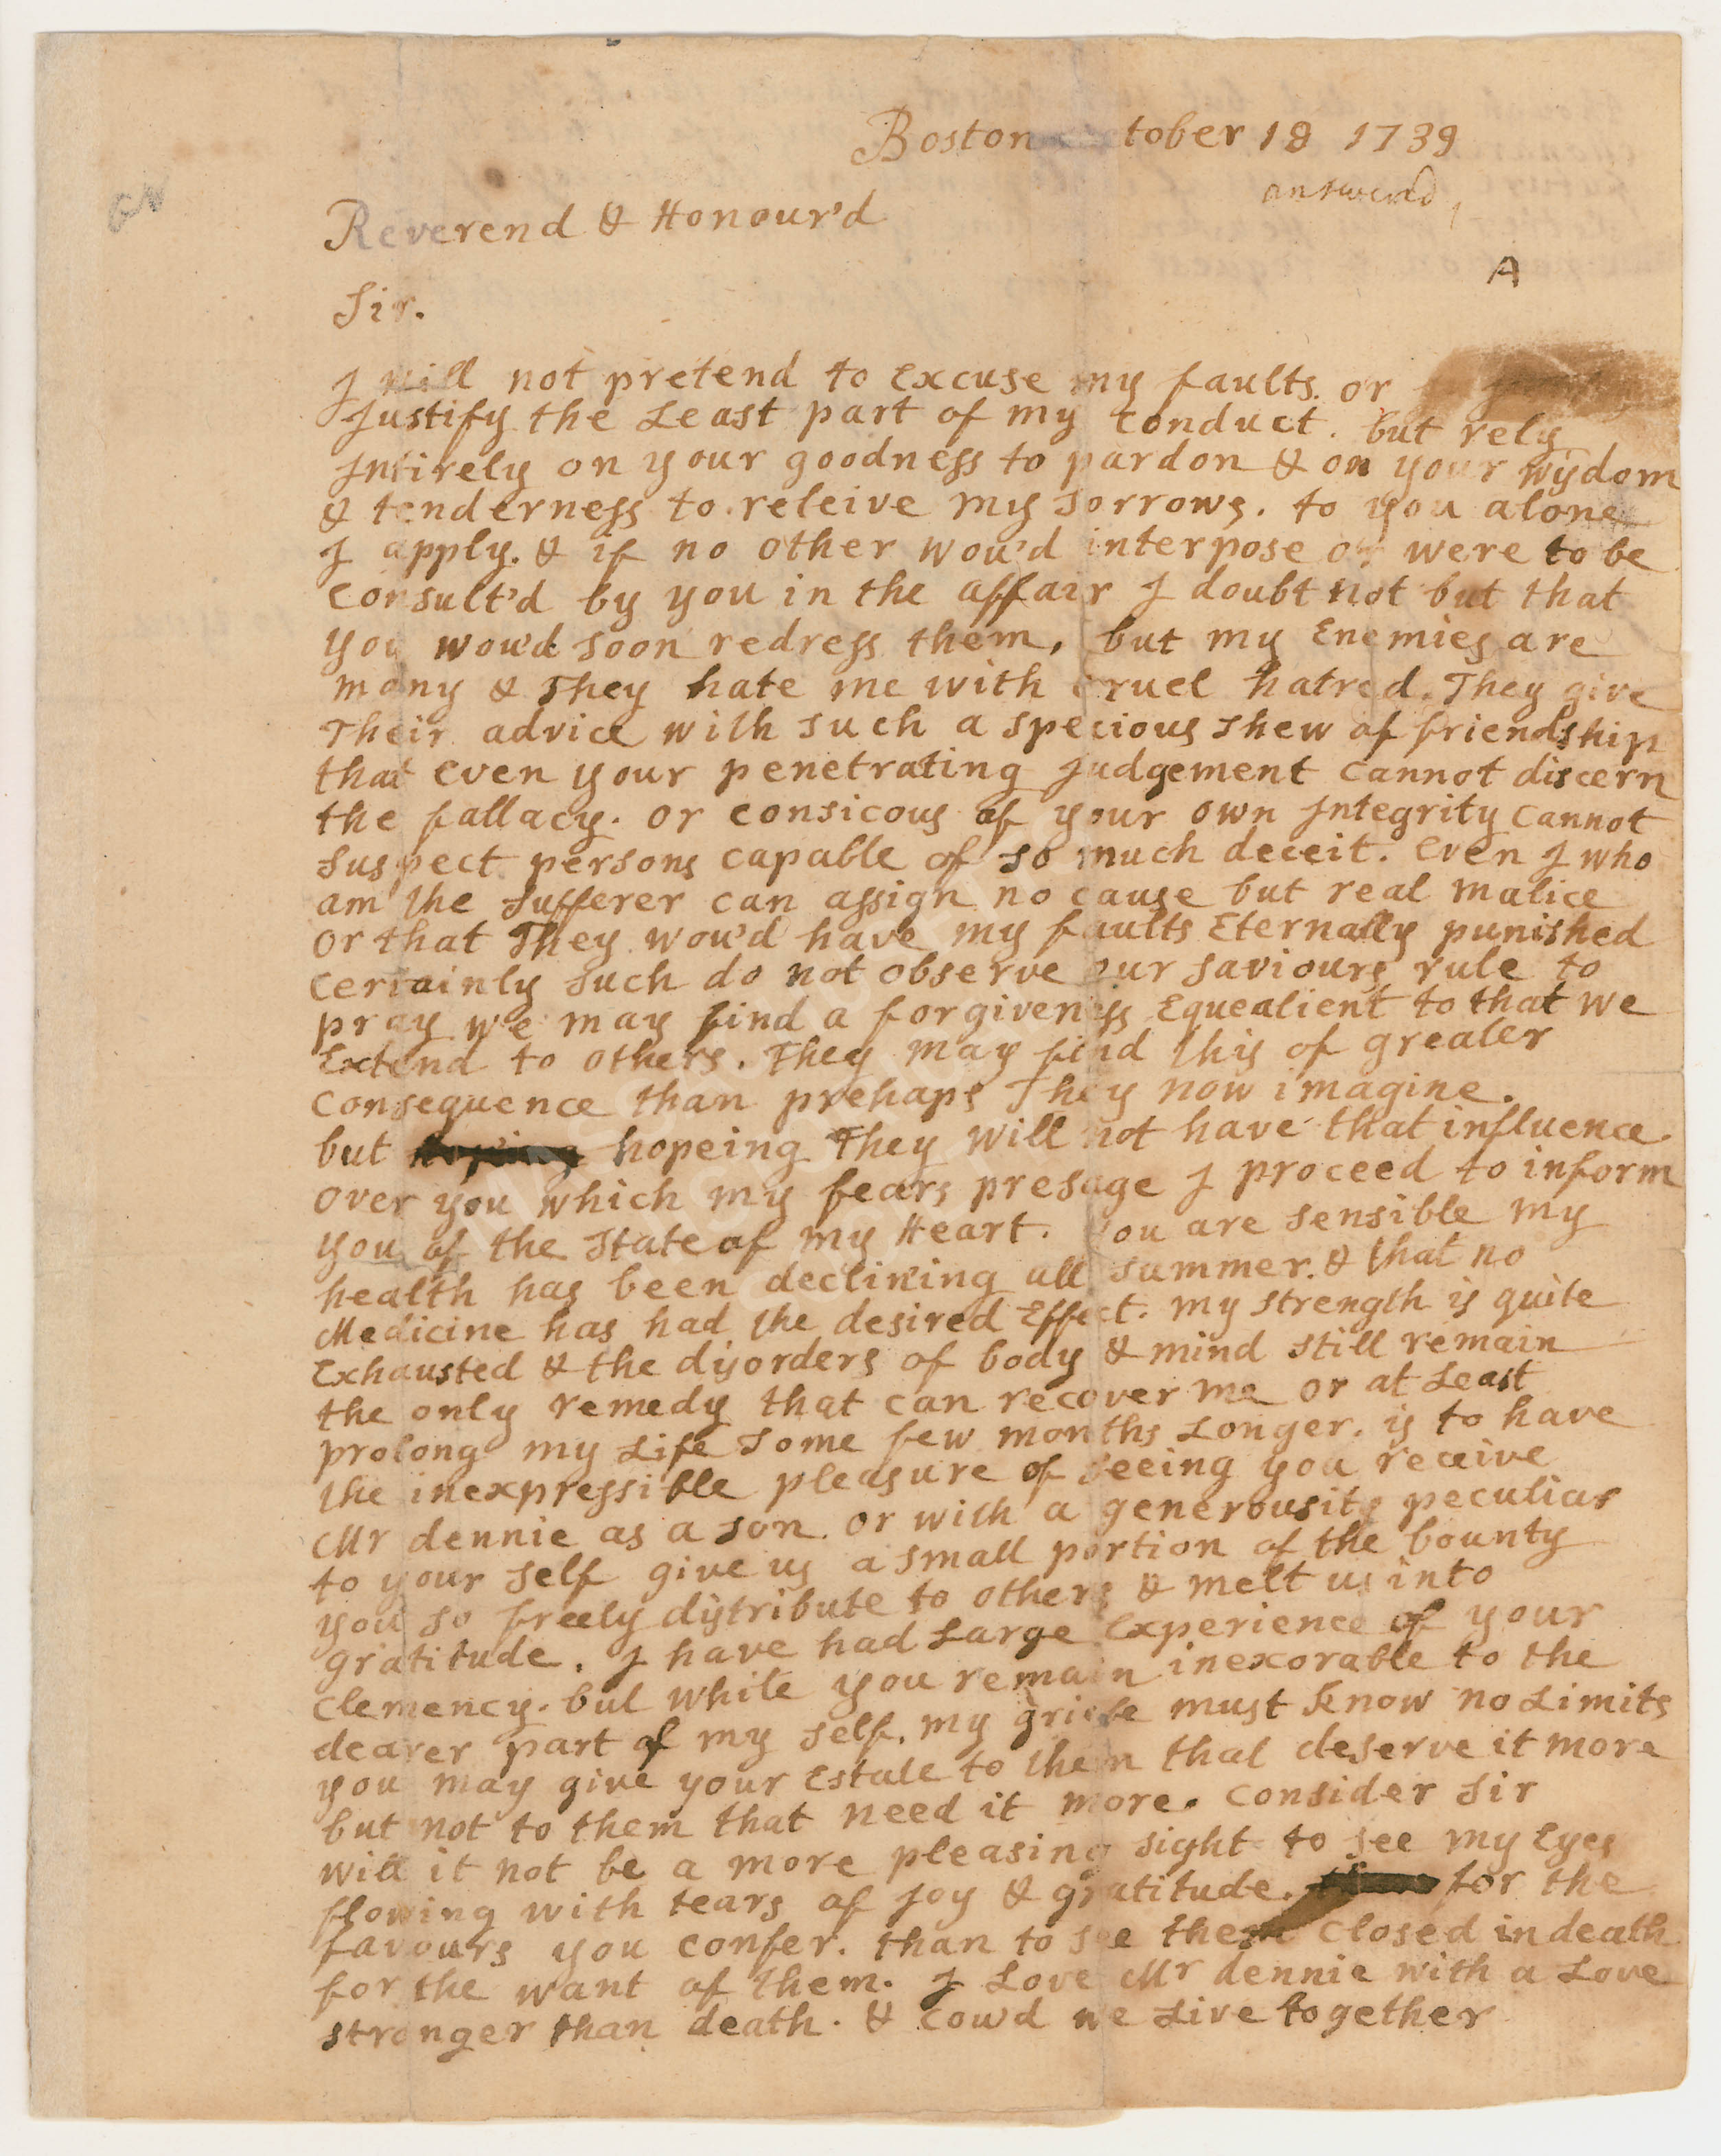 Boston  tober 18 1739
answered,
GW
Reverend & Honour'd
A
Sir.
I will not pretend to Excuse my faults. or
Justify the Least part of my Conduct. but rely
Intirely on your goodness to pardon & on your wysdom
& tenderness to releive my Sorrows. to you alone
I apply. & if no other wou'd interpose or were to be
Consult'd by you in the affair I doubt not but that
you wou'd soon redress them, but my Enemies are
many & They hate me with cruel hatred. They give
Their advice with such a specious shew of friendship
that even your penetrating Judgement Cannot discern
the fallacy. or consicous of your own Integrity Cannot
Suspect persons capable of so much deceit. even I who
am the Sufferer can assign no cause but real malice
or that They wou'd have my faults Eternally punished
Certainly Such do not observe our Saviours rule to
pray we may find a forgiveness Equealient to that we
Extend to others. They may find this of greater
Consequence than prehaps They now imagine.
but hopeing They will not have that influence
over you which my fears presage I proceed to inform
you of the State of my Heart. you are sensible my
health has been declining all summer. & that no
Medicine has had the desired Effect. my strength is quite
Exhausted & the disorders of body & mind still remain
the only remedy that can recover me or at Least
prolong my Life some few months Longer. is to have
the inexpressible pleasure of seeing you receive
Mr dennie as a son. or with a generousity peculiar
to your self give us a small portion of the bounty
you so freely distribute to others & melt us into
gratitude. I have had Large Experience of your
Clemency. but while you remain inexorable to the
dearer part of my self. my griefe must know no Limits
you may give your Estate to them that deserve it more
but not to them that need it more. Consider Sir
will it not be a more pleasing sight to see my Eyes
flowing with tears of joy & gratitude. for the
favours you confer. than to see them Closed in death
for the want of them. I Love Mr dennie with a Love
stronger than death. & cou'd we Live together